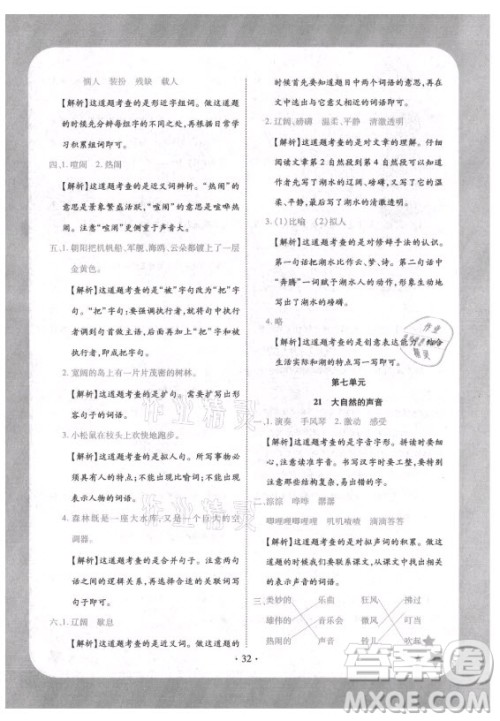 惰人 装扮 残缺 载人
【解析】这道题考查的是形近字组词。做这道题
的时候先分辨每组字的不同之处，然后根据平时
学习积累组词即可。
四、1.喧闹 2.热闹
【解析】这道题考查的是近义词辨析。“热闹”的
意思是景象繁盛活跃，“喧闹”的意思是喧哗热
闹。注意“喧闹”更侧重于声音大。
五、1.朝阳把机帆船、军舰、海鸥、云朵都镀上了一层
金黄色。
【解析】这道题考查的是将“被”字句改为“把”字
句。“把”字句更为强调执行者，就要将执行者提
到句首做主语。
2.宽阔的岛上有一片片茂密的树林。
【解析】这道题考查的是扩句。扩句需要加上形
容句子的词语。
3.小松鼠在枝头上欢快地跑步。
【解析】这道题考查的是拟人句的用法。所写事物
必须具有人的某一特点或多种特点，才能用来比
拟。拟人和比喻不同，不能出现比喻词，也不能出现
表示人物的词语。
4.森林既是一座大水库，又是一个巨大的空
调器。
【解析】这道题考查的是合并句子。做题时先分清
两句话之间的逻辑关系，选择合适的关联词改写
句子即可。
六、1.辽阔 歇息
【解析】这道题考查的是近义词。做这道题的
时候首先要了解前面两个词语的意思，再进
在文中查找即可。
2.辽阔、磅礴 温柔、平静 清澈、透明
【解析】这道题考查的是对文章的理解。仔细
阅读文章第 2 自然段到第 4 自然段即可发现，
这三段分别写了湖水的辽阔、磅礴，湖水的温
柔、平静，还写了湖水的清澈透明。
3.(1)比喻 (2)拟人
【解析】这道题考查的是对修辞手法的认识。
第一句话把湖水比作云、梦、诗。第二句话中
“奔腾”一词赋予湖水人的动作，形象生动地
表现了湖水的磅礴。
4.略
【解析】这道题考查的是创意表达能力。结合
生活实际和湖的特点写一写即可。
第七单元
21 大自然的声音
一、演奏 手风琴 激动 感受
【解析】这道题考查的是字音字形。做题时要读
准音，看清形。书写汉字时要注意字的结构和易
错、易混的字。
二、淙淙 哗哗 潺潺
唧哩哩唧哩哩 叽叽喳喳 滴滴答答
【解析】这道题考查的是对拟声词的积累。做这
道题的时候可以联系课文，从课文中找出相关
的表示声音的词语。
三、美妙的 乐曲 狂风 拂过
雄伟的 音乐 微风 奏响
热闹的 声音 铃儿 吹起
· 32 ·
作业精灵
作业精灵
答案圈
MXQE.COM